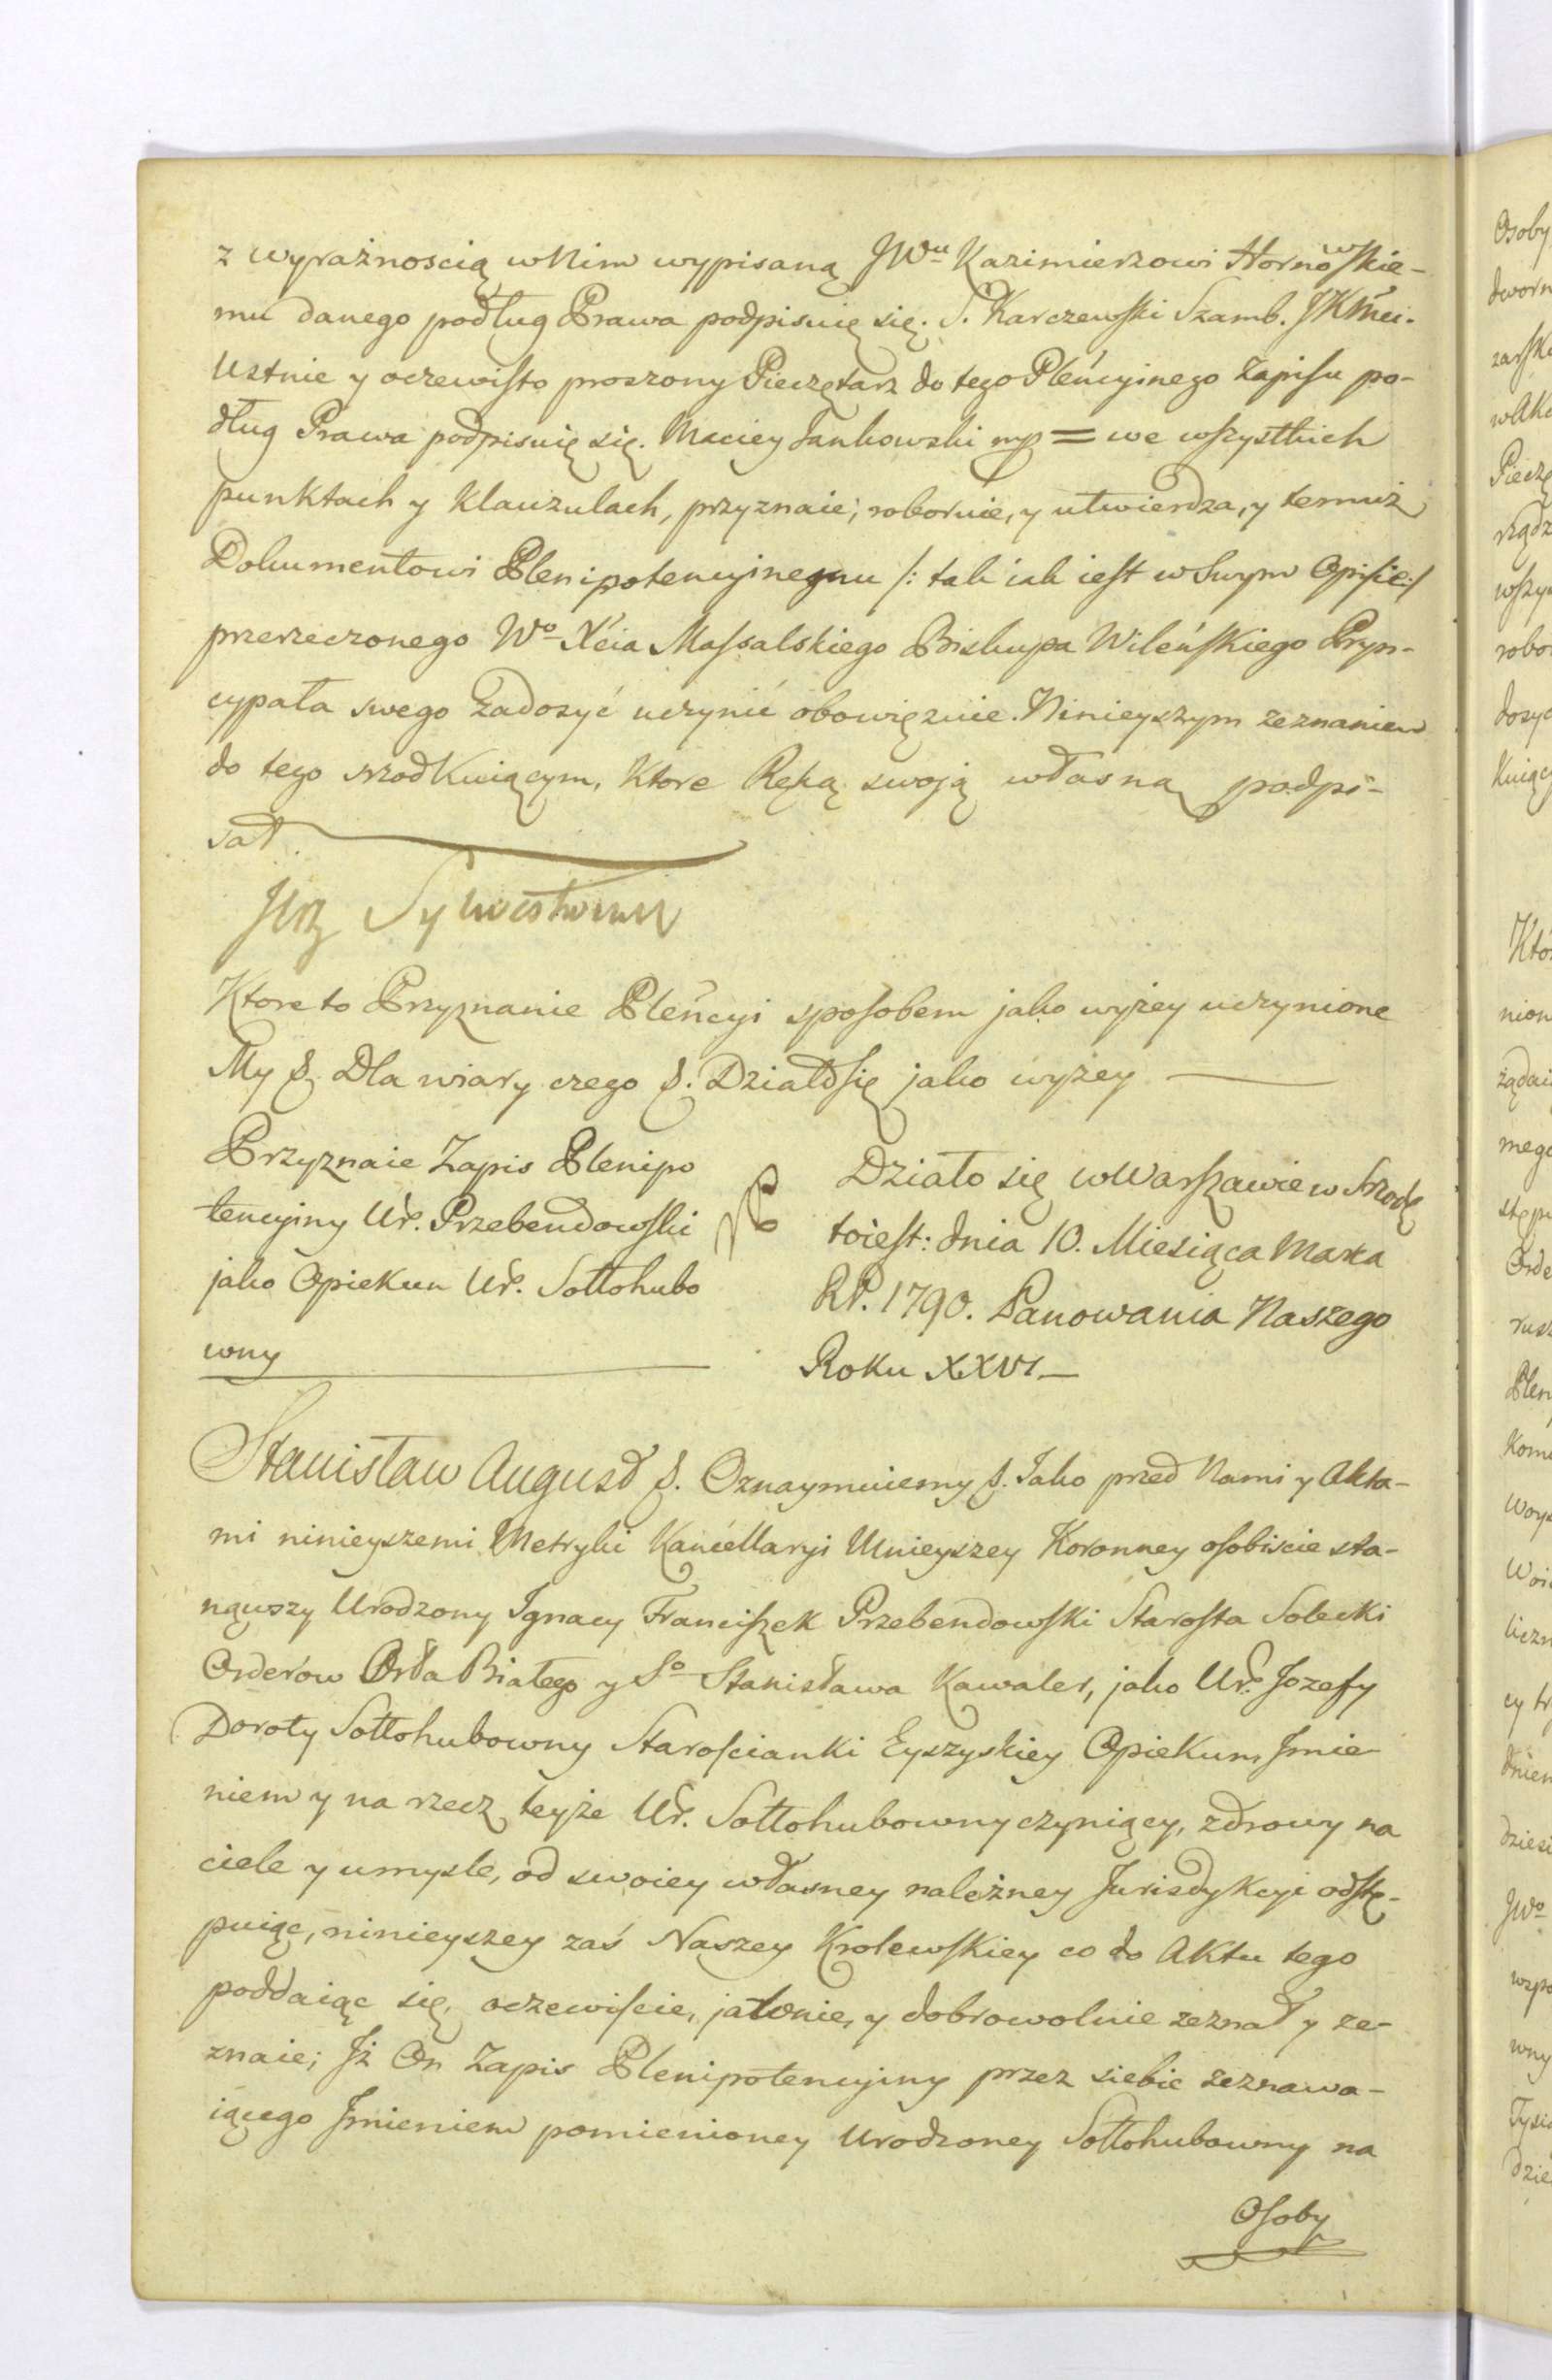 z wyrażnoscią w Nim wypisaną JWu Kazimierzowi Hornowskie-
mu danego podług Prawa podpisuię się. S. Karczewski Szamb. JKMci.
Ustnie y oczewisto proszony Pieczętarz do tego Pleńcyinego Zapisu po-
dług Prawa podpisuię się. Maciey Jankowski mp = we wszystkich
punktach y klauzulach, przyznaie, roboruie, y utwierdza, y temuż
Dokumentowi Plenipotencyinemu /: tak iak iest w Swym Opisie :/
przerzeczonego Wo Xcia Massalskiego Biskupa Wileńskiego Pryn-
cypała swego Zadosyć uczynić obowięzuie. Ninieyszym zeznaniem
do tego srzodkuiącym, Ktore Ręką swoią własną podpi-
sał.
Ktore to Przyznanie Pleńcyi sposobem jako wyżey uczynione
My &. Dla wiary czego &. Działo się jako wyżey
Przyznaie Zapis Plenipo
tencyiny Ur. Przebendowski
jako Opiekun Ur. Sołłohubo
wny
Działo się w Warszawie w Srzodę
toiest: dnia 10. Miesiąca Marca
RP. 1790. Panowania Naszego
Roku XXVI
Stanisław August &. Oznaymuiemy &. Jako przed Nami y Akta-
mi ninieyszemi Metryki Kancellaryi Mnieyszey Koronney osobiscie sta-
nąwszy Urodzony Ignacy Franciszek Przebendowski Starosta Solecki
Orderow Orła Białego y So Stanisława Kawaler, jako Ur. Jozefy
Doroty Sołłohubowny Starościanki Eyszyskiey Opiekun, Jmie
niem y na rzecz teyże Ur. Sołłohubowny czyniący, zdrowy na
ciele y umysle, od swoiey własney należney Jurisdykcyi odstę-
puiąc, ninieyszey zaś Naszey Krolewskiey co do Aktu tego
poddaiąc się, oczewiscie, jawnie, y dobrowolnie zeznał y ze-
znaie; Jż On Zapis Plenipotencyiny przez siebie zeznawa-
iącego Jmieniem pomienioney Urodzoney Sołłohubowny na
Osoby